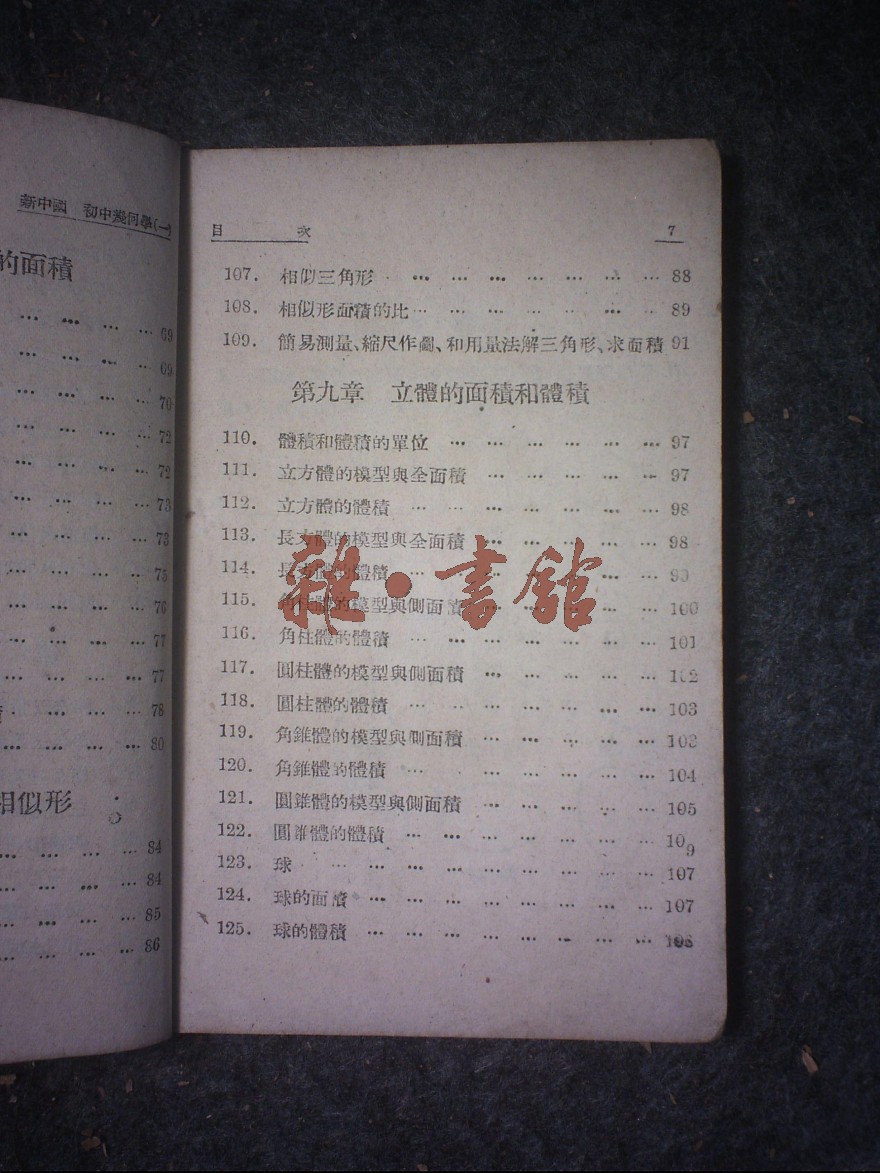 新中國 初中幾何學(一)
的面積
… … … … 69
… … … … 69
… … … … 70
… … … … 72
… … … … 72
… … … … 73
… … … … 73
… … … … 75
… … … … 76
… … … … 77
… … … … 77
… … … … 78
… … … … 80
相似形
… … … … 84
… … … … 84
… … … … 85
… … … … 86
目 次 7
107. 相似三角形 … … … … … … … 88
108. 相似形面積的比 … … … … … … … 89
109. 簡易測量、縮尺作圖、和用量法解三角形、求面積 91
第九章 立體的面積和體積
110. 體積和體積的單位 … … … … … … 97
111. 立方體的模型與全面積 … … … … … 97
112. 立方體的體積 … … … … … … … 98
113. 長方體的模型與全面積 … … … … … 98
114. 長方體的體積 … … … … … … … 99
115. 角柱體的模型與側面積 … … … … … 100
116. 角柱體的體積 … … … … … … … 101
117. 圓柱體的模型與側面積 … … … … … 102
118. 圓柱體的體積 … … … … … … … 103
119. 角錐體的模型與側面積 … … … … … 103
120. 角錐體的體積 … … … … … … … 104
121. 圓錐體的模型與側面積 … … … … … 105
122. 圓錐體的體積 … … … … … … … 109
123. 球 … … … … … … … … … 107
124. 球的面積 … … … … … … … … 107
125. 球的體積 … … … … … … … … 108
雜·書館